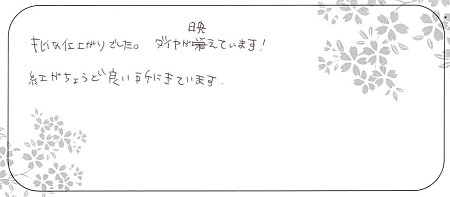 映
キレイな仕上がりでした。 ダイヤが栄えています!
紅がちょうど良い所にきています.